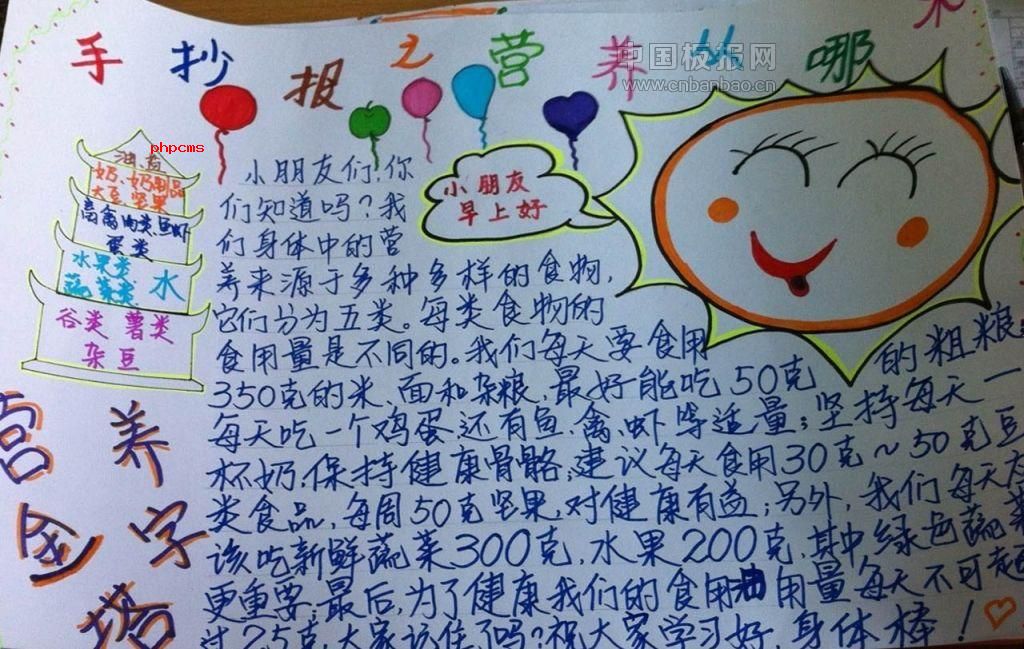 手抄报之营养从哪来
中国板报网
www.cnbanbao.cn
phpcms
油、盐
奶、奶制品
大豆、坚果
畜禽肉类、鱼虾
蛋类
水果类
蔬菜类 水
谷类 薯类
杂豆
营养
金字
塔
小朋友
早上好
小朋友们,你
们知道吗?我
们身体中的营
养来源于多种多样的食物,
它们分为五类。每类食物的
食用量是不同的。我们每天要食用
350克的米、面和杂粮,最好能吃50克 的粗粮。
每天吃一个鸡蛋,还有鱼、禽、虾等适量;坚持每天一
杯奶,保持健康骨骼;建议每天食用30克~50克豆
类食品,每周50克坚果,对健康有益;另外,我们每天应
该吃新鲜蔬菜300克,水果200克,其中,绿色蔬菜
更重要;最后,为了健康我们的食用油用量每天不可超
过25克,大家记住了吗?祝大家学习好,身体棒!